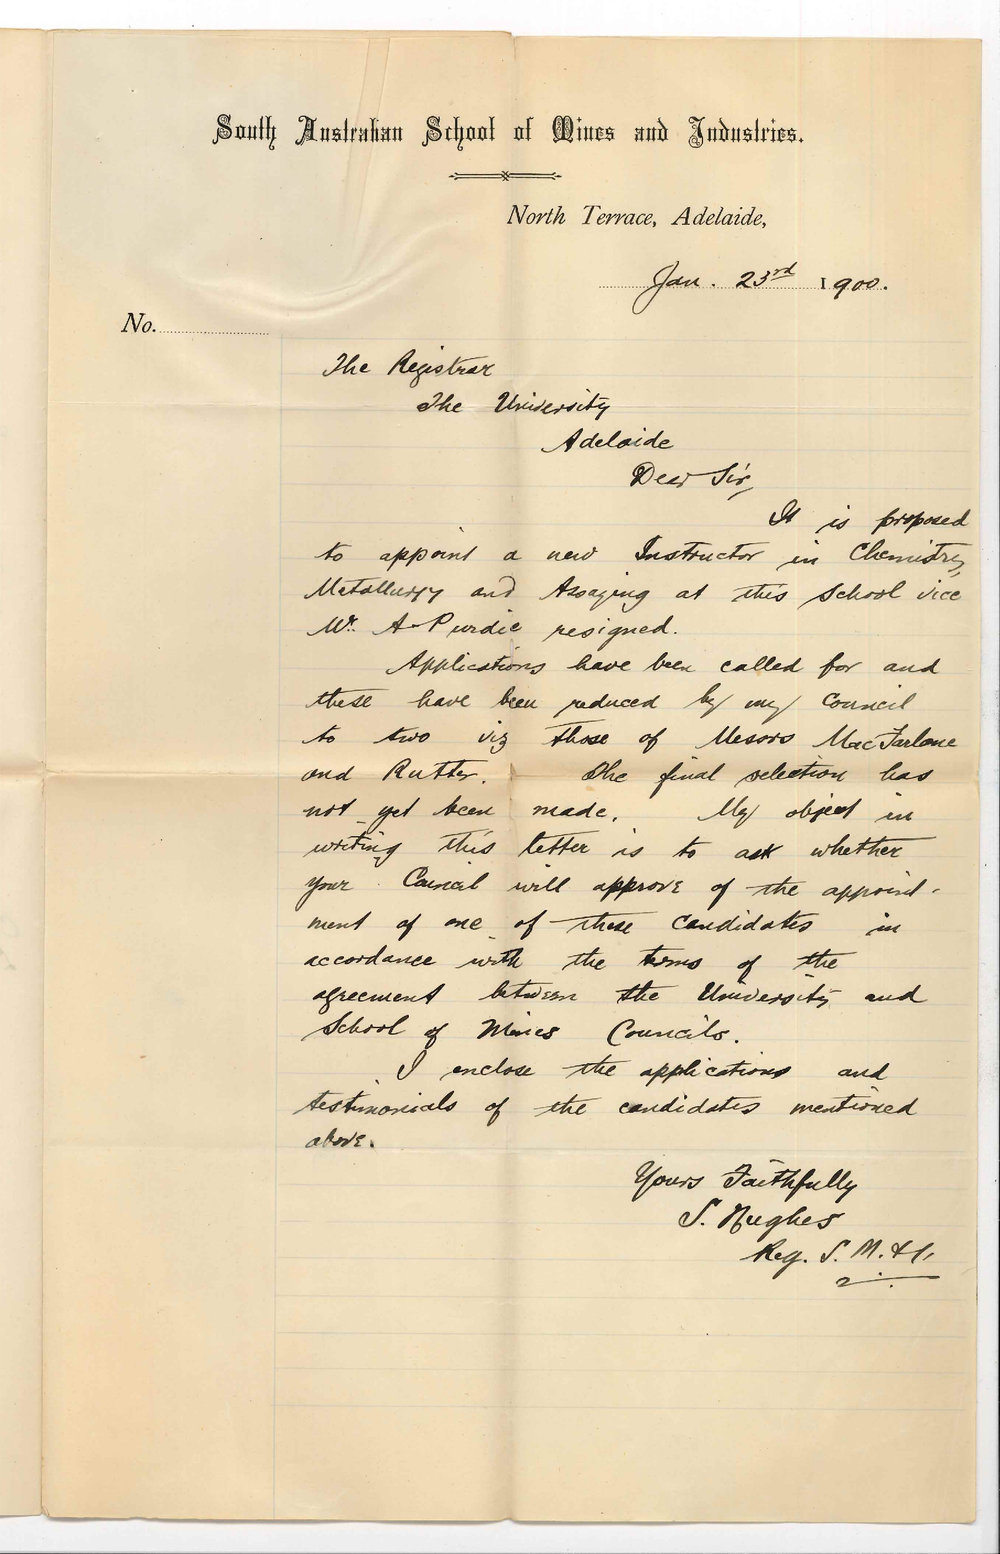 South Australian School of Mines and Industries.
North Terrace, Adelaide,
Jan. 23rd 1900.
No.
The Registrar
The University
Adelaide
Dear Sir,
It is proposed
to appoint a new Instructor in Chemistry,
Metallurgy and Assaying at this School vice
Mr. A Purdie resigned.
Applications have been called for and
these have been reduced by my Council
to two viz those of Messrs MacFarlane
and Rutter. The final selection has
not yet been made. My object in
writing this letter is to ask whether
your Council will approve of the appoint-
ment of one of these candidates in
accordance with the terms of the
agreement between the University and
School of Mines Councils.
I enclose the applications and
testimonials of the candidates mentioned
above.
Yours Faithfully
S. Hughes
Reg. S. M. & I.